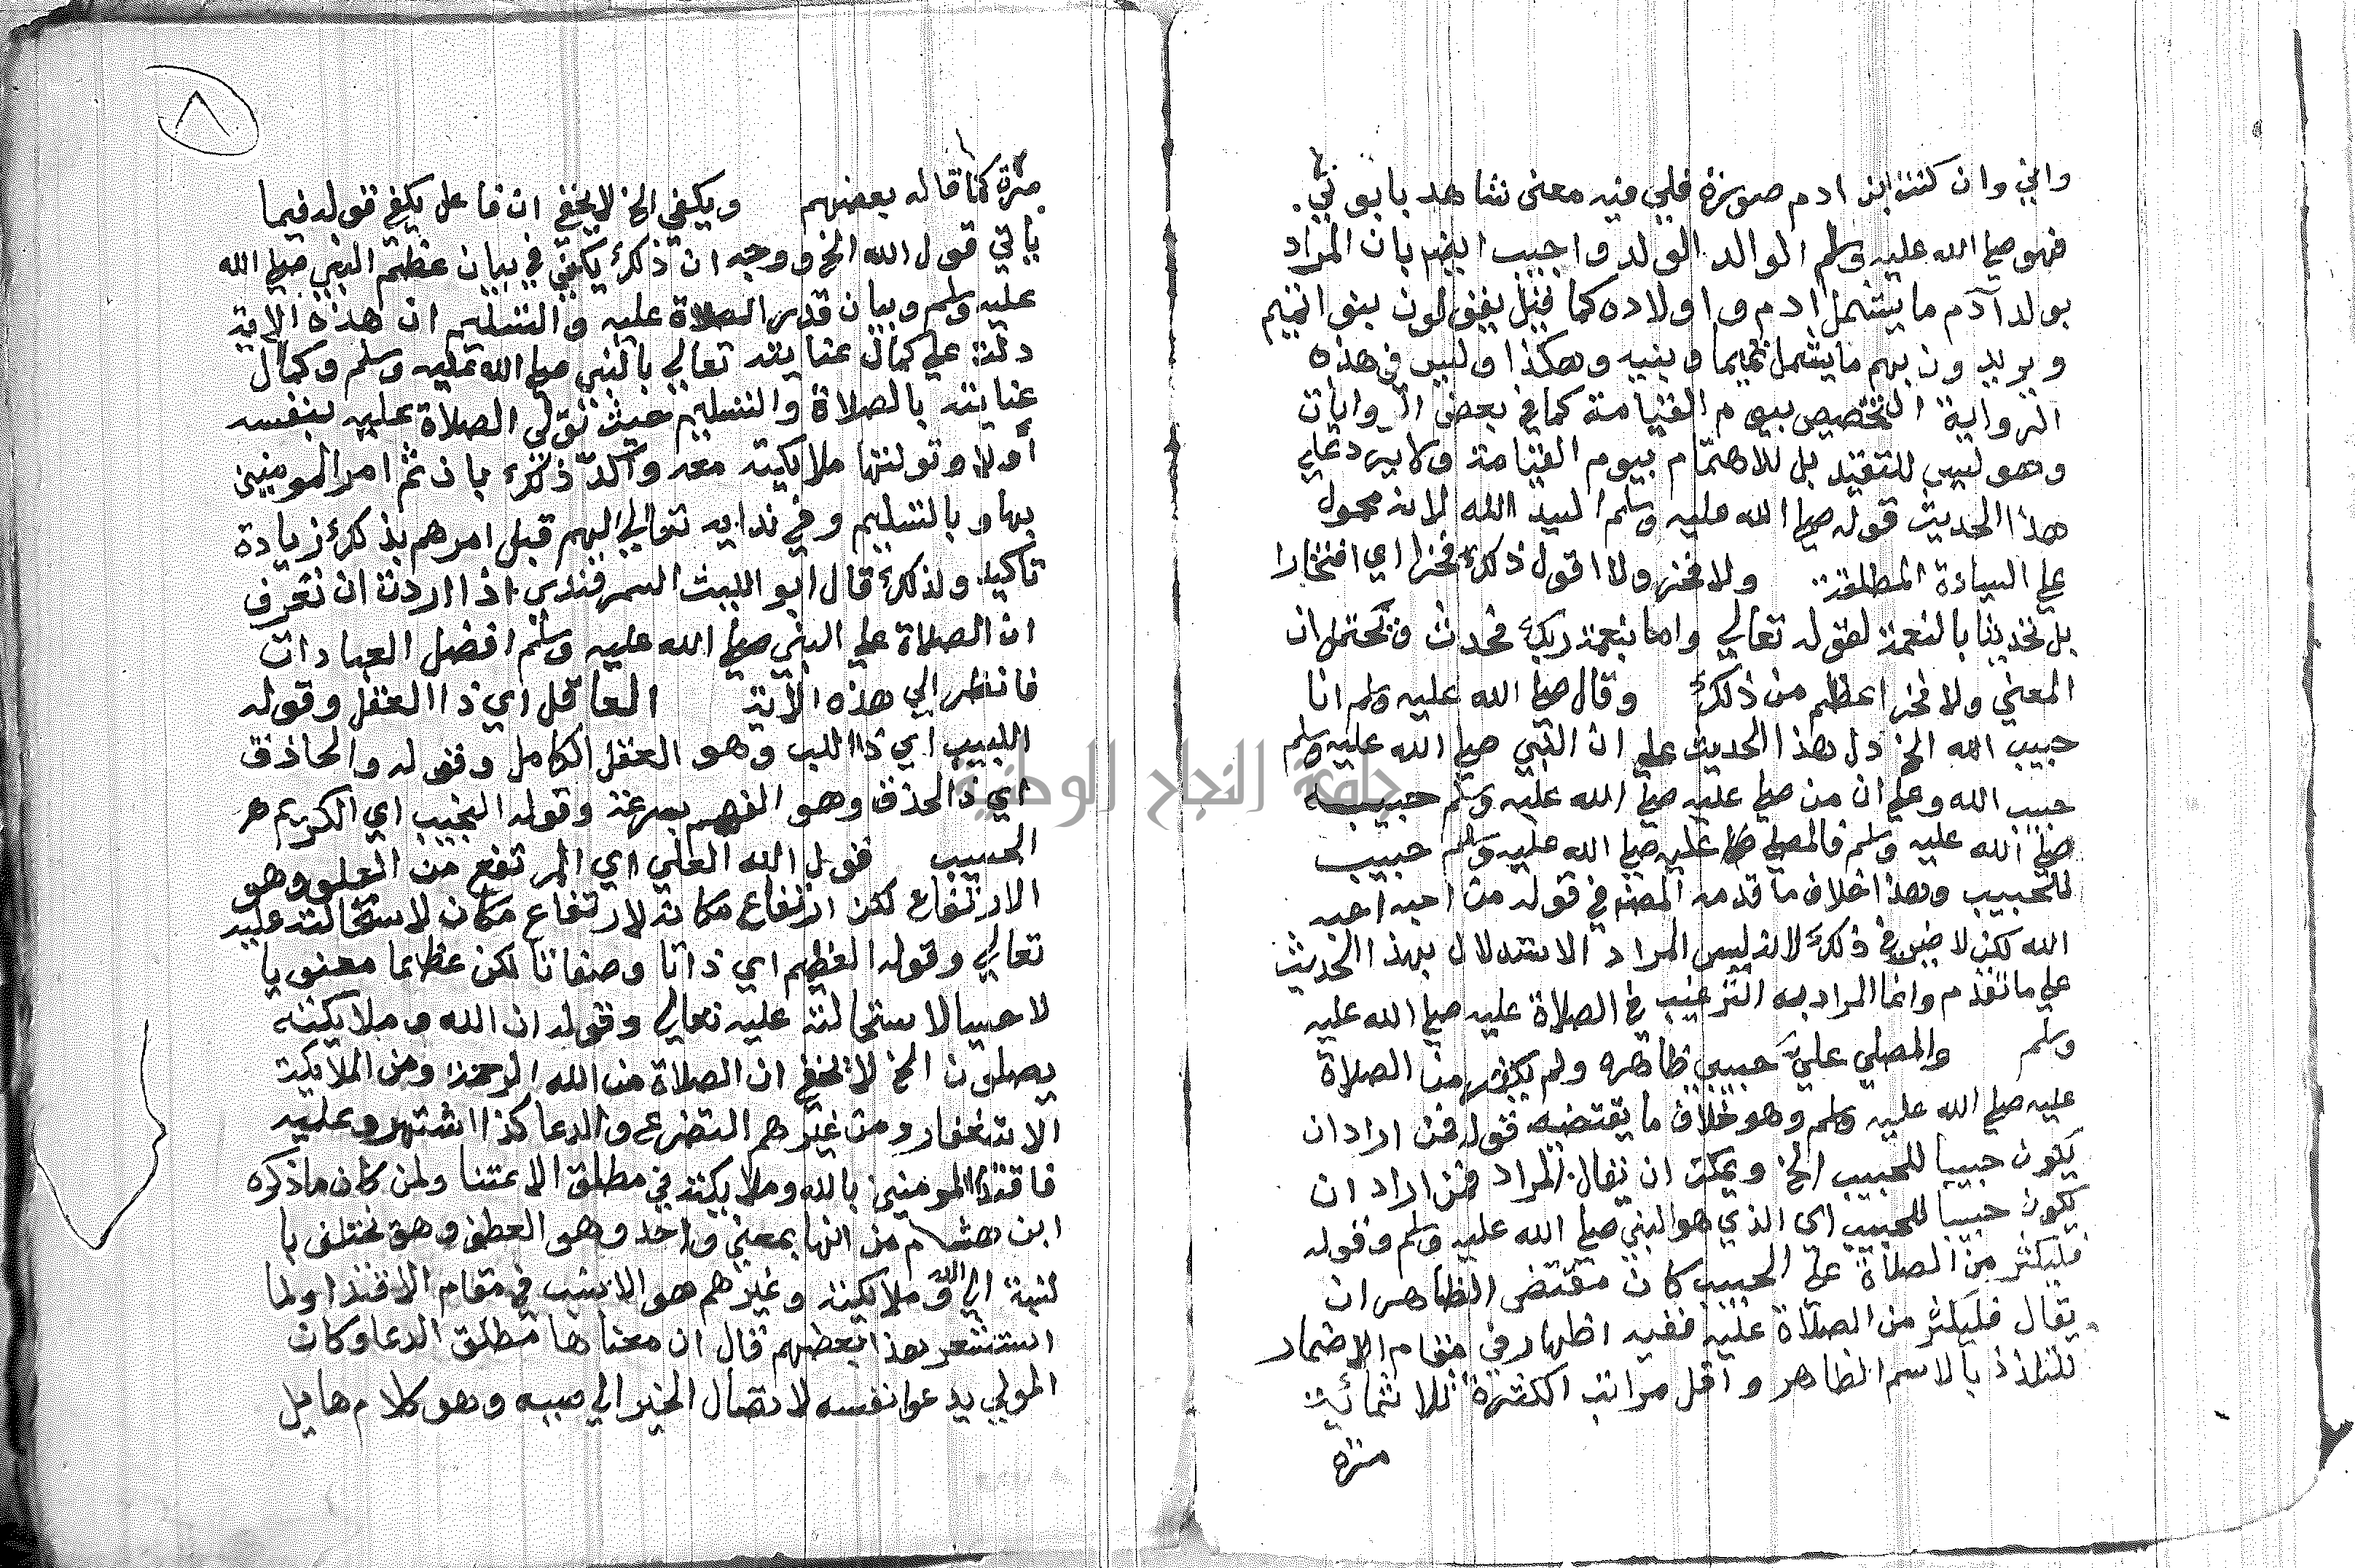 واني وان كنت ابن ادم صورة فلي فيه معني شاهد بابوتي
فهو صلي الله عليه وسلم الوالد الولد واجيب ايضم بان المراد
بولد آدم ما يشمل ادم واولاده كما قيل يقولون بنو اتميم
ويريدون بهم ما يشمل تميما وبنيه وهكذا وليس في هذه
الرواية التخصيص بيوم القيامة كما في بعض الروايات
وهو ليس للتقيد بل للاهتمام بيوم القيامة ولا يرد علي
هذا الحديث قوله صلي الله عليه وسلم السيد الله لانه محمول
علي السيادة المطلقة ولا فخر ولا اقول ذلك فخرا اي افتخارا
بل تحديثا بالنعمة لقوله تعالي واما بنعمة ربك فحدث ويحتمل ان
المعني ولا فخر اعظم من ذلك وقال صلي الله عليه وسلم انا
حبيب الله الخ دل هذا الحديث علي ان النبي صلي الله عليه وسلم
حبيب الله وعلي ان من صلي عليه صلي الله عليه وسلم حبيبه
صلي الله عليه وسلم فالمصلي عليه صلي الله عليه وسلم حبيب
للحبيب وهذا خلاف ما قدمه المصنف في قوله من احبه احبه
الله لكن لا ضير في ذلك لانه ليس المراد الاستدلال بهذا الحديث
علي ما تقدم وانما المراد به الترغيب في الصلاة عليه صلي الله عليه
وسلم والمصلي علي حبيبي ظاهره ولم يكثر من الصلاة
عليه صلي الله عليه وسلم وهو خلاف ما يقتضيه قوله فمن اراد ان
يكون حبيبا للحبيب الخ ويمكن ان يقال المراد فمن اراد ان
يكون حبيبا للحبيب اي الذي هو النبي صلي الله عليه وسلم وقوله
فليكثر من الصلاة علي الحبيب كان مقتضي الظاهر ان
يقال فليكثر من الصلاة عليه ففيه اظهار في مقام الاضمار
للتلذذ بالاسم الظاهر واقل مراتب الكثرة ثلاثمائة
مرة
٨
مرة كما قاله بعضهم ويكفي الخ لا يخفي ان فاعل يكفي قوله فيما
ياتي قول الله الخ ووجه ان ذلك يكفي في بيان عظم النبي صلي الله
عليه وسلم وبيان قدر الصلاة عليه والتسليم ان هذه الاية
دلت علي كمال عنايته تعالي بالنبي صلي الله عليه وسلم وكمال
عنايته بالصلاة والتسليم حيث تولي الصلاة عليه بنفسه
أولا وتولتها ملايكته معه وأكد ذلك بان ثم امر المومنين
بها وبالتسليم وفي ندايه تعالي اليهم قبل امرهم بذلك زيادة
تاكيد ولذلك قال ابو الليث السمرقندي اذا اردت ان تعرف
ان الصلاة علي النبي صلي الله عليه وسلم افضل العبادات
فانظر الي هذه الاية العاقل اي ذا العقل وقوله
اللبيب اي ذا اللب وهو العقل الكامل وقوله والحاذق
اي ذا الحذق وهو الفهم بسرعة وقوله النجيب اي الكريم
الحسيب قول الله العلي اي المرتفع من العلو وهو
الارتفاع لكن ارتفاع مكانة لا ارتفاع مكان لاستحالته عليه
تعالي وقوله العظيم اي ذاتا وصفاتا لكن عظما معنويا
لا حسيا لاستحالته عليه تعالي وقوله ان الله وملايكته
يصلون الخ لا يخفي ان الصلاة من الله الرحمة ومن الملايكة
الاستغفار ومن غيرهم التضرع والدعا كذا اشتهر وعليه
فاقتدا المومنين بالله وملايكته في مطلق الاعتنا ولمن كان ما ذكره
ابن هشام من انها بمعني واحد وهو العطف وهو تختلف با
لنسبة الي الله وملايكته وغيرهم هو الانسب في مقام الاقتدا ولما
استشعر هذا بعضهم قال ان معناها مطلق الدعا وكان
المولي يدعوا نفسه لاتصال الخير الي حبيبه وهو كلام هايل
جامعة النجاح الوطنية